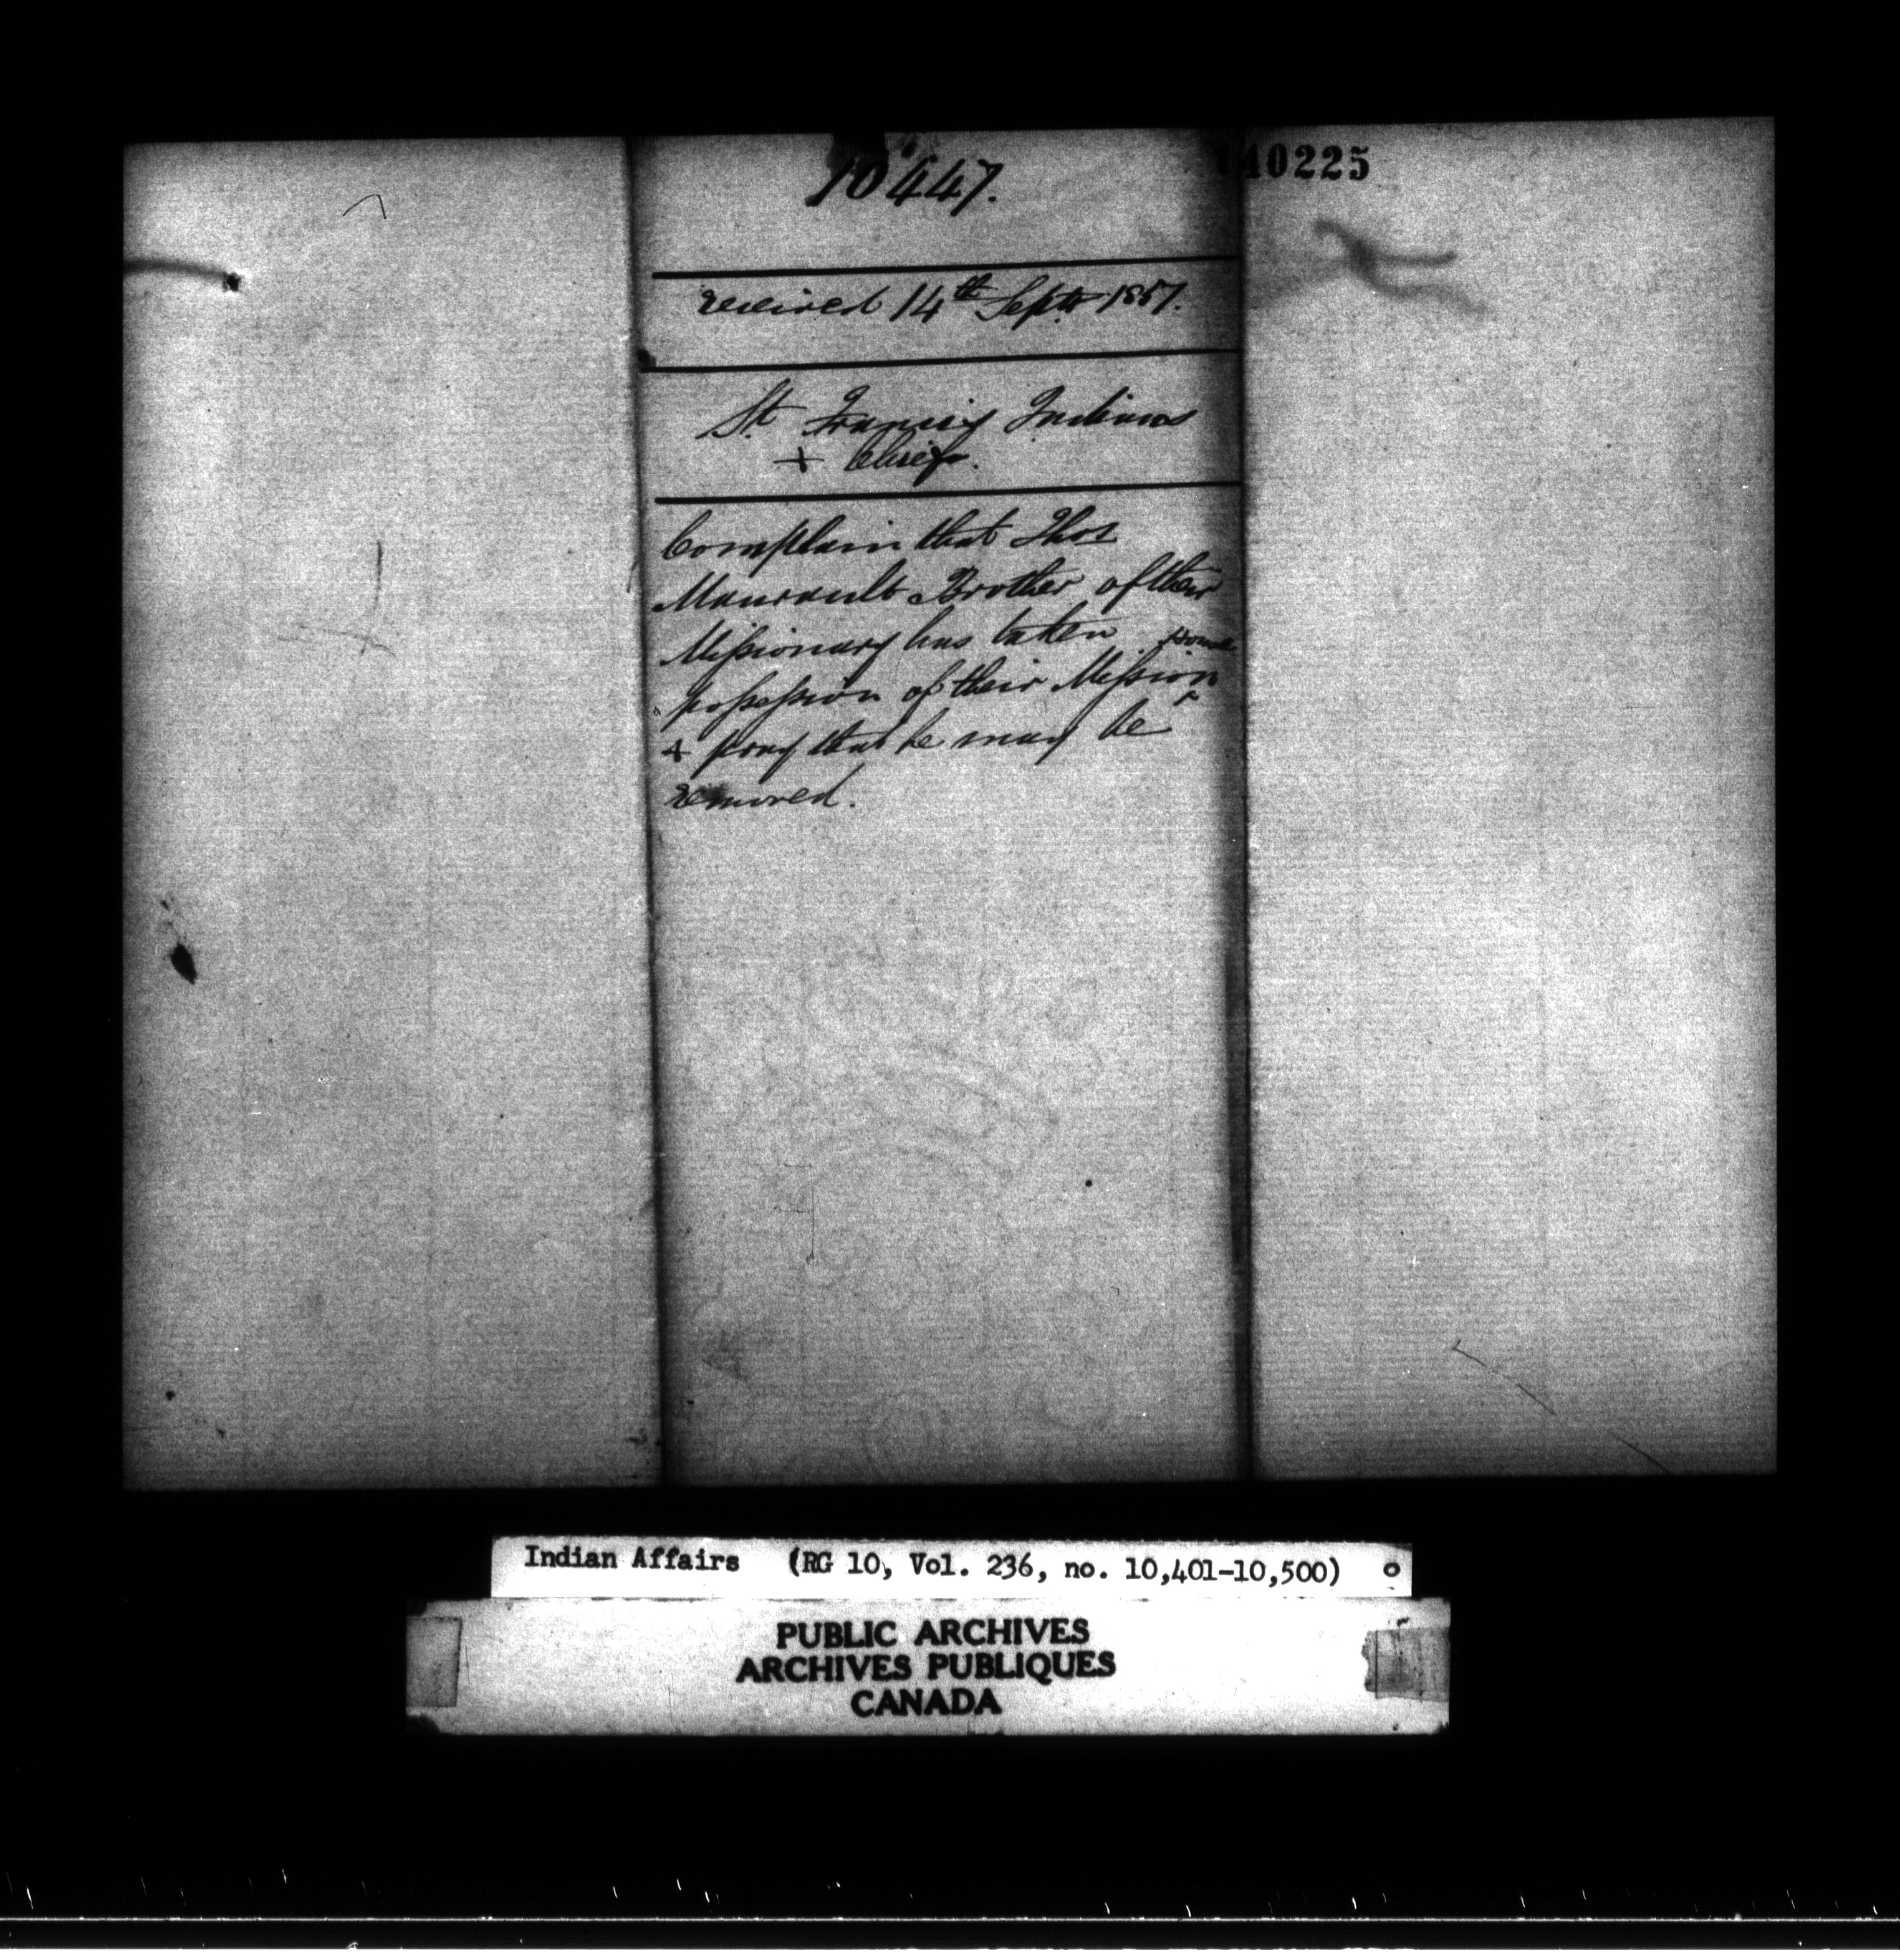 10447.
140225
received 14th Septr 1857.
St Francis Indians
+ Chiefs.
Complain that Thos
Maurault Brother of their
Missionary has taken
possession of their Mission ^ House
+ pray that he may be
removed.
Indian Affairs (RG 10, Vol. 236, no. 10,401-10,500) o
PUBLIC ARCHIVES
ARCHIVES PUBLIQUES
CANADA